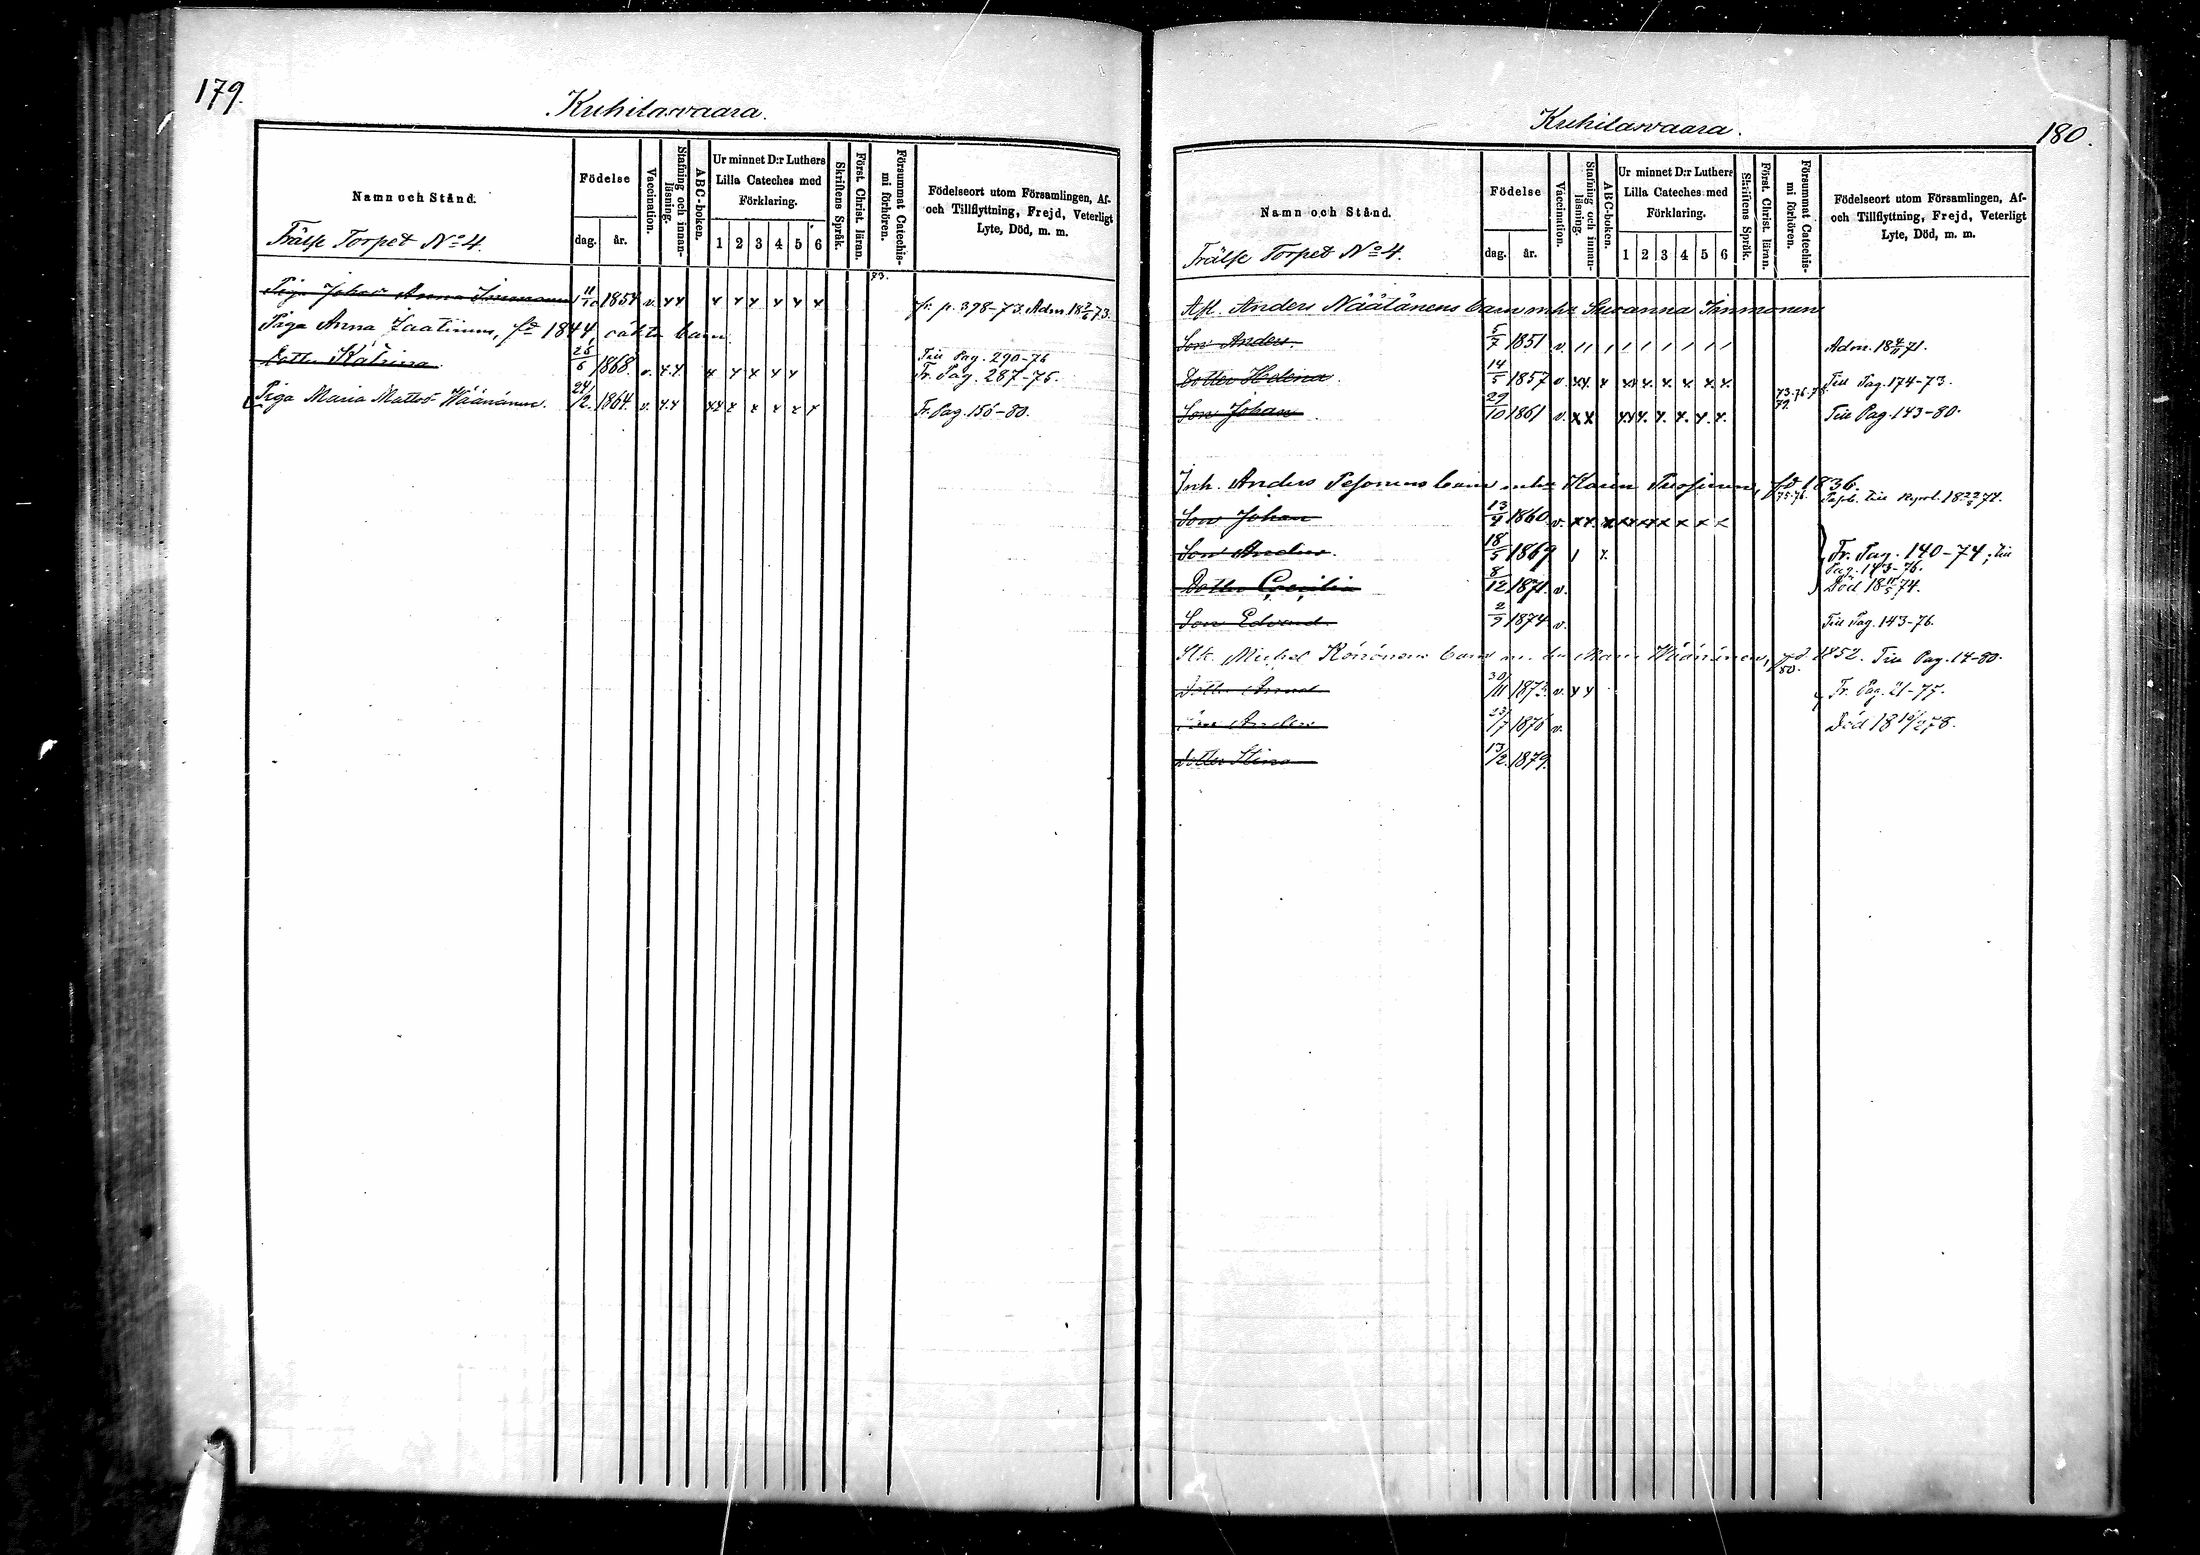 179.
Kuhilasvaara.
Namn och Stånd.
Födelse
dag. år.
Vaccination.
Stafning och innanläsning.
ABC-boken.
Ur minnet D:r Luthers Lilla Cateches med Förklaring.
1 2 3 4 5 6
Skriftens Språk.
Först. Christ. läran.
Försummat Catechismi förhören.
Födelseort utom Församlingen, Af- och Tillflyttning, Frejd, Veterligt Lyte, Död, m. m.
Frälse Torpet No 4.
83.
Piga Johans Anna Immonen 11/10 1854 v. x x x x x x x x fr. p. 398-73. Adm. 18 2/6 73.
Piga Anna Laatinens, fd 1844, oäkta barn
Dotter Katrina 25/6 1868. v. x.x. x x x x x Till Pag. 290-76
Fr. Pag. 287-75.
Piga Maria Mattsd Wäänänen. 24/2. 1864. v. x.x x x x x x x x Fr. Pag. 156-80.
Kuhilasvaara.
180.
Namn och Stånd.
Födelse
dag. år.
Vaccination.
Stafning och innanläsning.
ABC-boken.
Ur minnet D:r Luthers Lilla Cateches med Förklaring.
1 2 3 4 5 6
Skriftens Språk.
Först. Christ. läran.
Försummat Catechismi förhören.
Födelseort utom Församlingen, Af- och Tillflyttning, Frejd, Veterligt Lyte, Död, m. m.
Frälse Torpet No 4.
Afl. Anders Näätänens barn m. hu Susanna Immonen
Son Anders. 5/7 1851 v. / / / / / / / / / Adm. 18 4/11 71.
Dotter Helena. 14/5 1857 v. xx x xx x. x. x x. x. Till Pag. 174-73.
Son Johan 29/10 1861 v. x x x.x x. x. x. x. x. 73. 76. 78. 79. Till Pag. 143-80.
Inh. Anders Pesonens barn m. hu Karin Tuosinen, fd 1836.
Son Johan 13/4 1860. v. x x. x xx xx x x x x 75. 76.
Son Anders. 18/5 1869 / x. Fr. Pag. 140-74, till Pag. 143-76.
Dotter Caecilia 8/12 1871. v. Död 18 11/5 74.
Son Edvard. 2/9 1874 v. Till Pag. 143-76.
Michel Könönens barn m. hu Maria Wäänänen, fd 1852. Till Pag. 14-80.
80.
Dotter Anna 30/11 1873. v. x x Fr. Pag. 21-77.
Son Anders 23/7 1876 v. Död 18 19/2 78.
Dotter Stina 13/2. 1879.